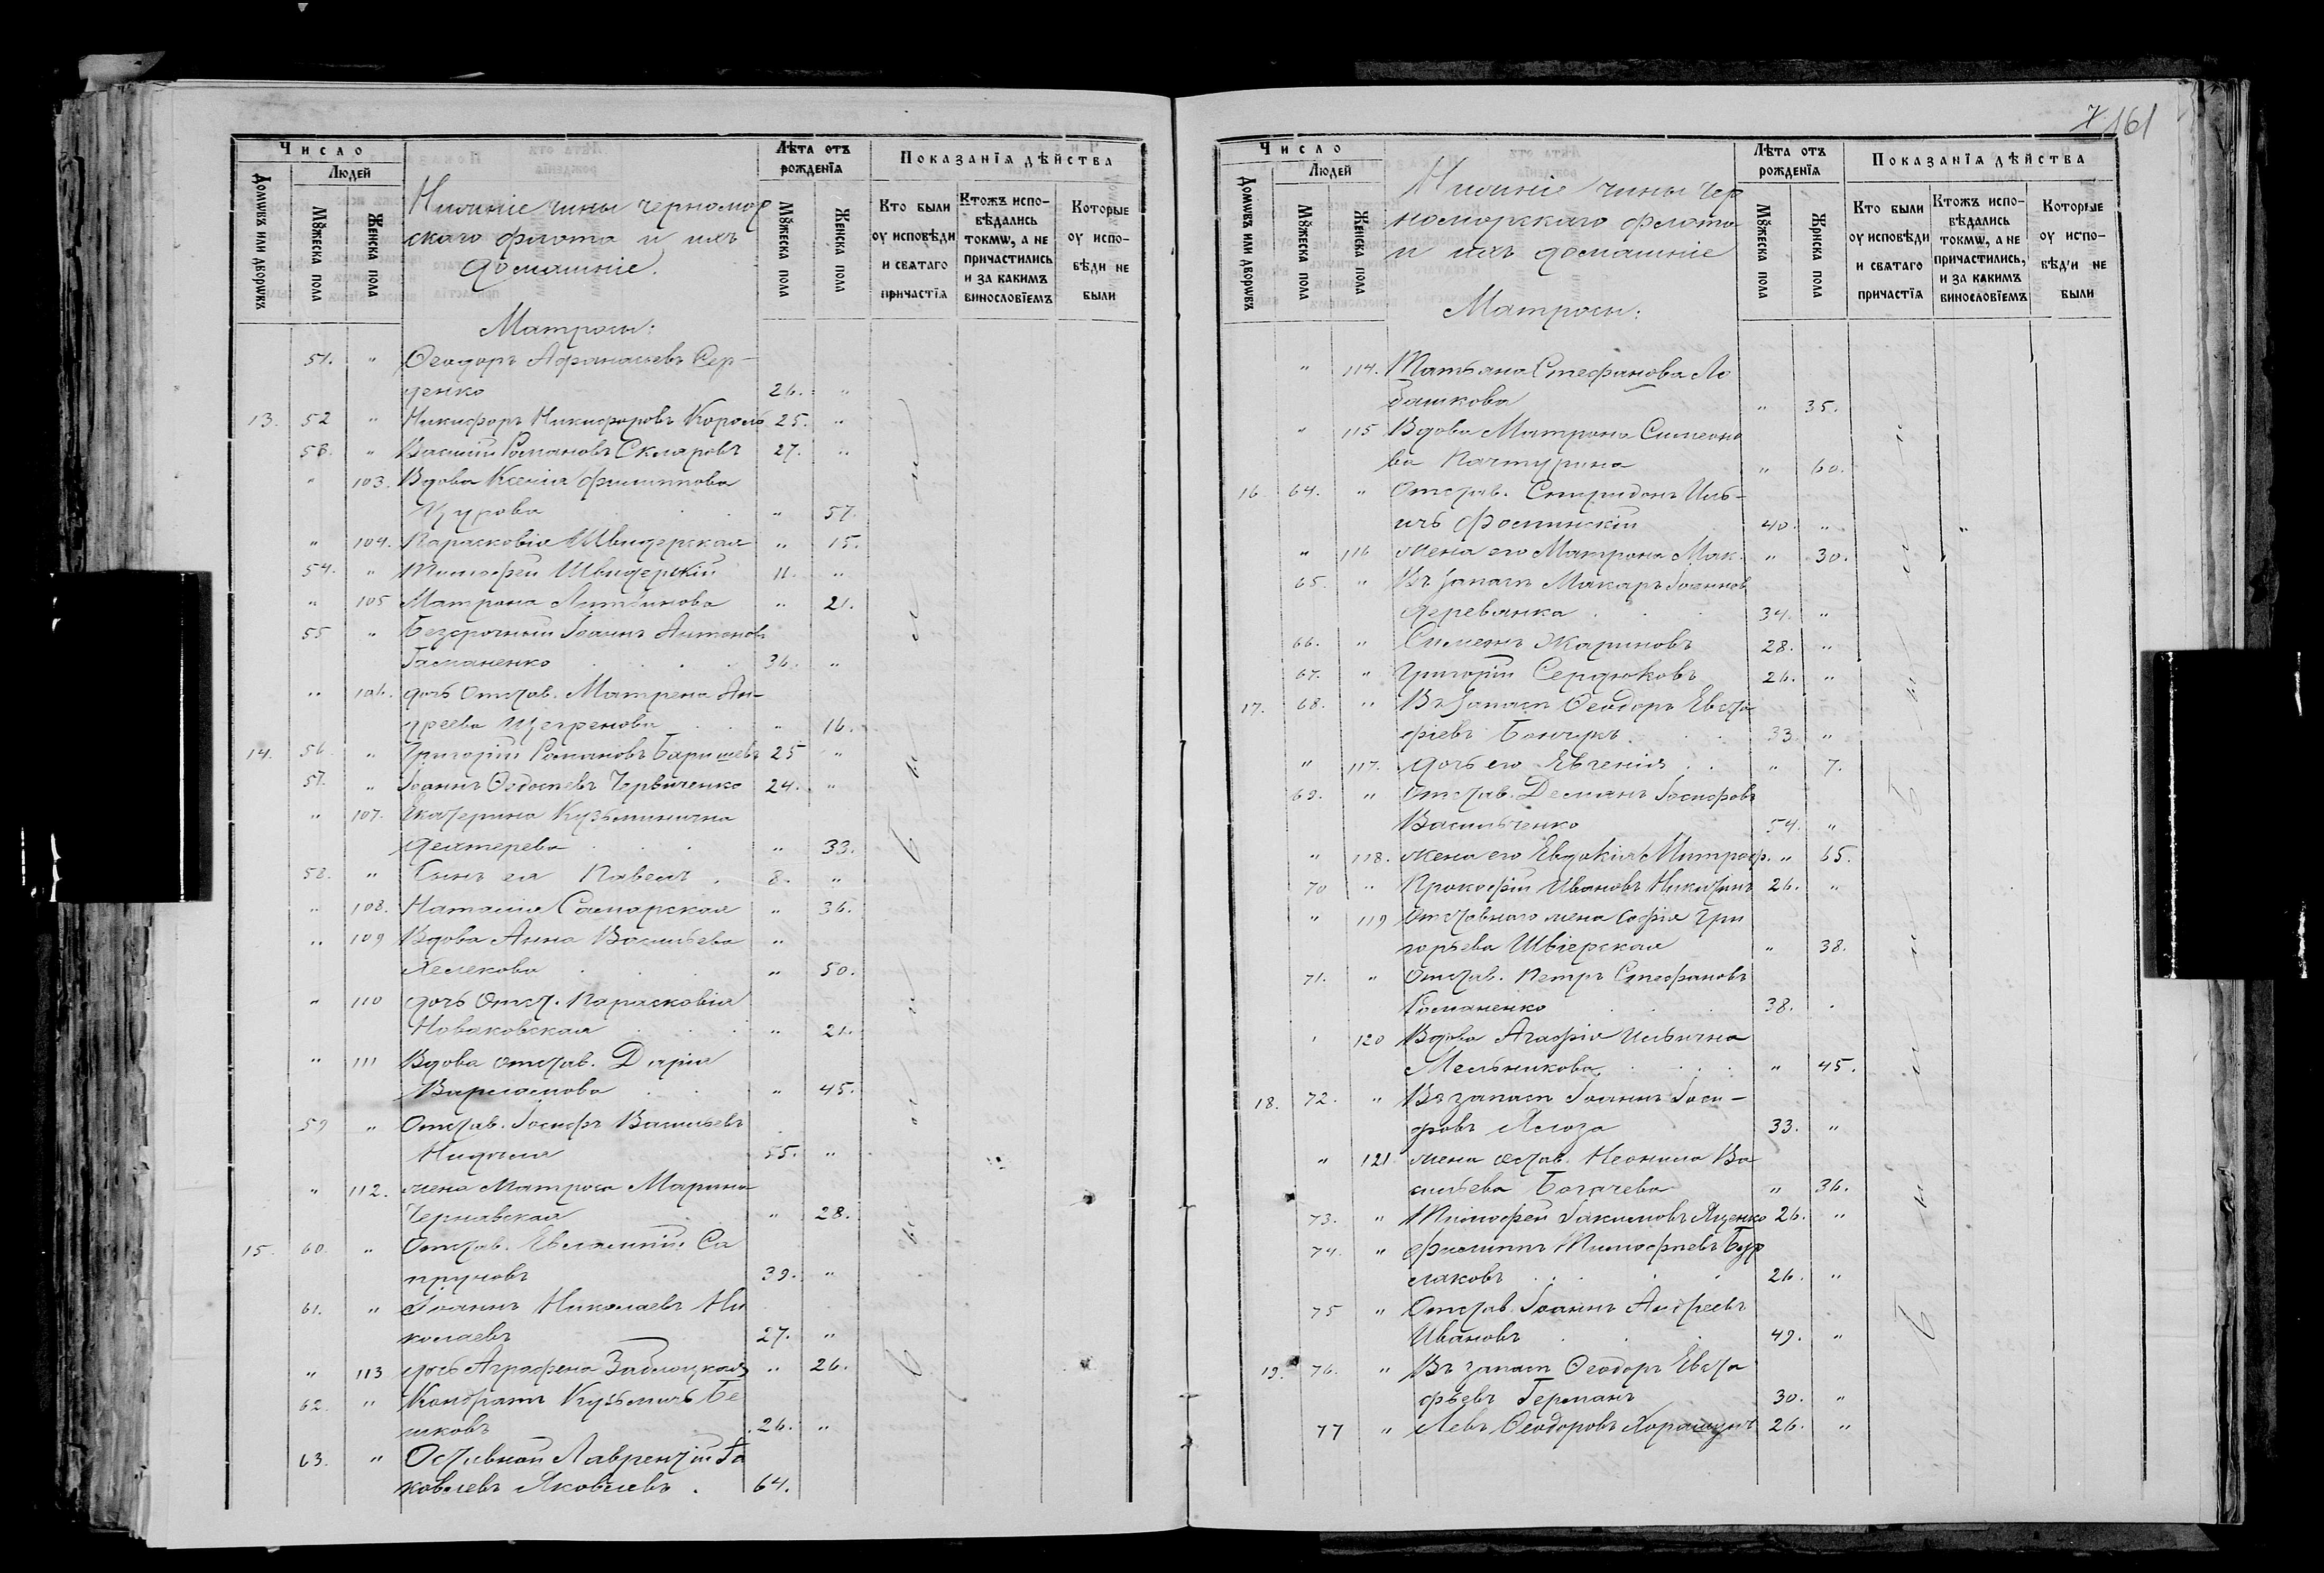 Число
Людей
Домωвъ или дворωвъ
Мꙋжеска пола
Женска пола
Нижніе чины черномор
скаго флота и ихъ
домашніе.
Лѣта отъ
рожденїѧ
Мꙋжеска пола
Женска пола
Показанїѧ дѣйства
Кто были
оу исповѣди
и свѧтаго
причастїѧ
Ктожъ испо-
вѣдались
токмω, а не
причастились
и за какимъ
винословїемъ
Которые
оу испо-
вѣди не
были
Матросы:
51. " Ѳеодоръ Афанасьевъ Сер-
денко 26. "
13. 52 " Никифоръ Никифоровъ Король 25. "
53. " Василій Романовъ Скляровъ 27. "
" 103. Вдова Ксенія Филиппова
" 57.
" 104. Парасковія Швидерская " 15.
54. " Тимофей Швидерскій 11. "
" 105 Матрона Литвинова " 21.
55 " Безсрочный Іоаннъ Антоновъ
Гасманенко 36. "
" 106. дочь Отстав. Матрена Ан-
дреева " 16.
14. 56 " Григорій Романовъ Барышевъ 25 "
57. " Іоаннъ Ѳедосіевъ Червиченко 24. "
" 107. Екатерина Кузьминична
Дегтерева " 33.
58. " Сынъ ея Павелъ . 8. "
" 108. Наталія Самарская " 36.
" 109 Вдова Анна Васильева "
" 50.
" 110 дочь Отст. Парасковія
Новаковская " 21.
" 111 Вдова отстав. Дарія
Варламова " 45.
59 " Отстав. Іосифъ Васильевъ
55. "
" 112. жена Матроса Марина
Чернавская " 28.
15. 60. " Отстав. Евлампій Са
пруновъ 39. "
61. " Іоаннъ Николаевъ Ни
колаевъ 27. "
" 113 дочь Аграфена Заблоцкая " 26.
62. " Кондратъ Кузьмичъ Бе
шковъ 26. "
63. " Отставной Лаврентій Іа
ковлевъ Яковлевъ . 64.
161
Число
Людей
Домωвъ или дворωвъ
Мꙋжеска пола
Женска пола
Нижніе чины Чер
номорскаго флота
и ихъ домашніе
Лѣта отъ
рожденїѧ
Мꙋжеска пола
Женска пола
Показанїѧ дѣйства
Кто были
оу исповѣди
и свѧтаго
причастїѧ
Ктожъ испо-
вѣдались
токмω, а не
причастились,
и за какимъ
винословїемъ
Которые
оу испо-
вѣди не
были
Матросы:
" 114. Татьяна Стефанова Ло
башкова " 35.
" 115 Вдова Матрона Симеоно
ва " 60.
16. 64. " Отстав. Спиридонъ Иль-
ичъ Фоминскій 40. "
" 116 жена его Матрона Мак. " 30.
65. " Въ запасъ Макаръ Іоаннов
Деревянка 34. "
66. " Симеонъ Жариновъ 28. "
67. " Григорій Сердюковъ 26. "
17. 68. " Въ запасъ Ѳеодоръ Евста
фіевъ Бончукъ 33. "
" 117. дочь его Евгенія . . " 7.
69. " Отстав. Демьянъ Іосифовъ
Васильченко 54. "
" 118. жена его Евдокія Митроф. " 65.
70 " Прокофій Ивановъ Никитинъ 26. "
" 119 Отставнаго жена Софія Гри
горьева Швіерская " 38.
71. " Отстав. Петръ Стефановъ
Романенко 38. "
" 120 Вдова Агафія Ильична
Мельникова " 45.
18. 72. " Въ запасъ Іоаннъ Іоси-
фовъ Ялоза 33. "
" 121. жена отстав. Неонила Ва
сильева Богачева " 36.
73. " Тимофей Іакимовъ Яценко 26. "
74. " Филиппъ Тимофіевъ Бур
лаковъ 26. "
75 " Отстав. Іоаннъ Андреевъ
Ивановъ 49. "
19. 76. " Въ запасъ Ѳеодоръ Евста
фьевъ Германъ 30. "
77 " Левъ Ѳеодоровъ 26. "